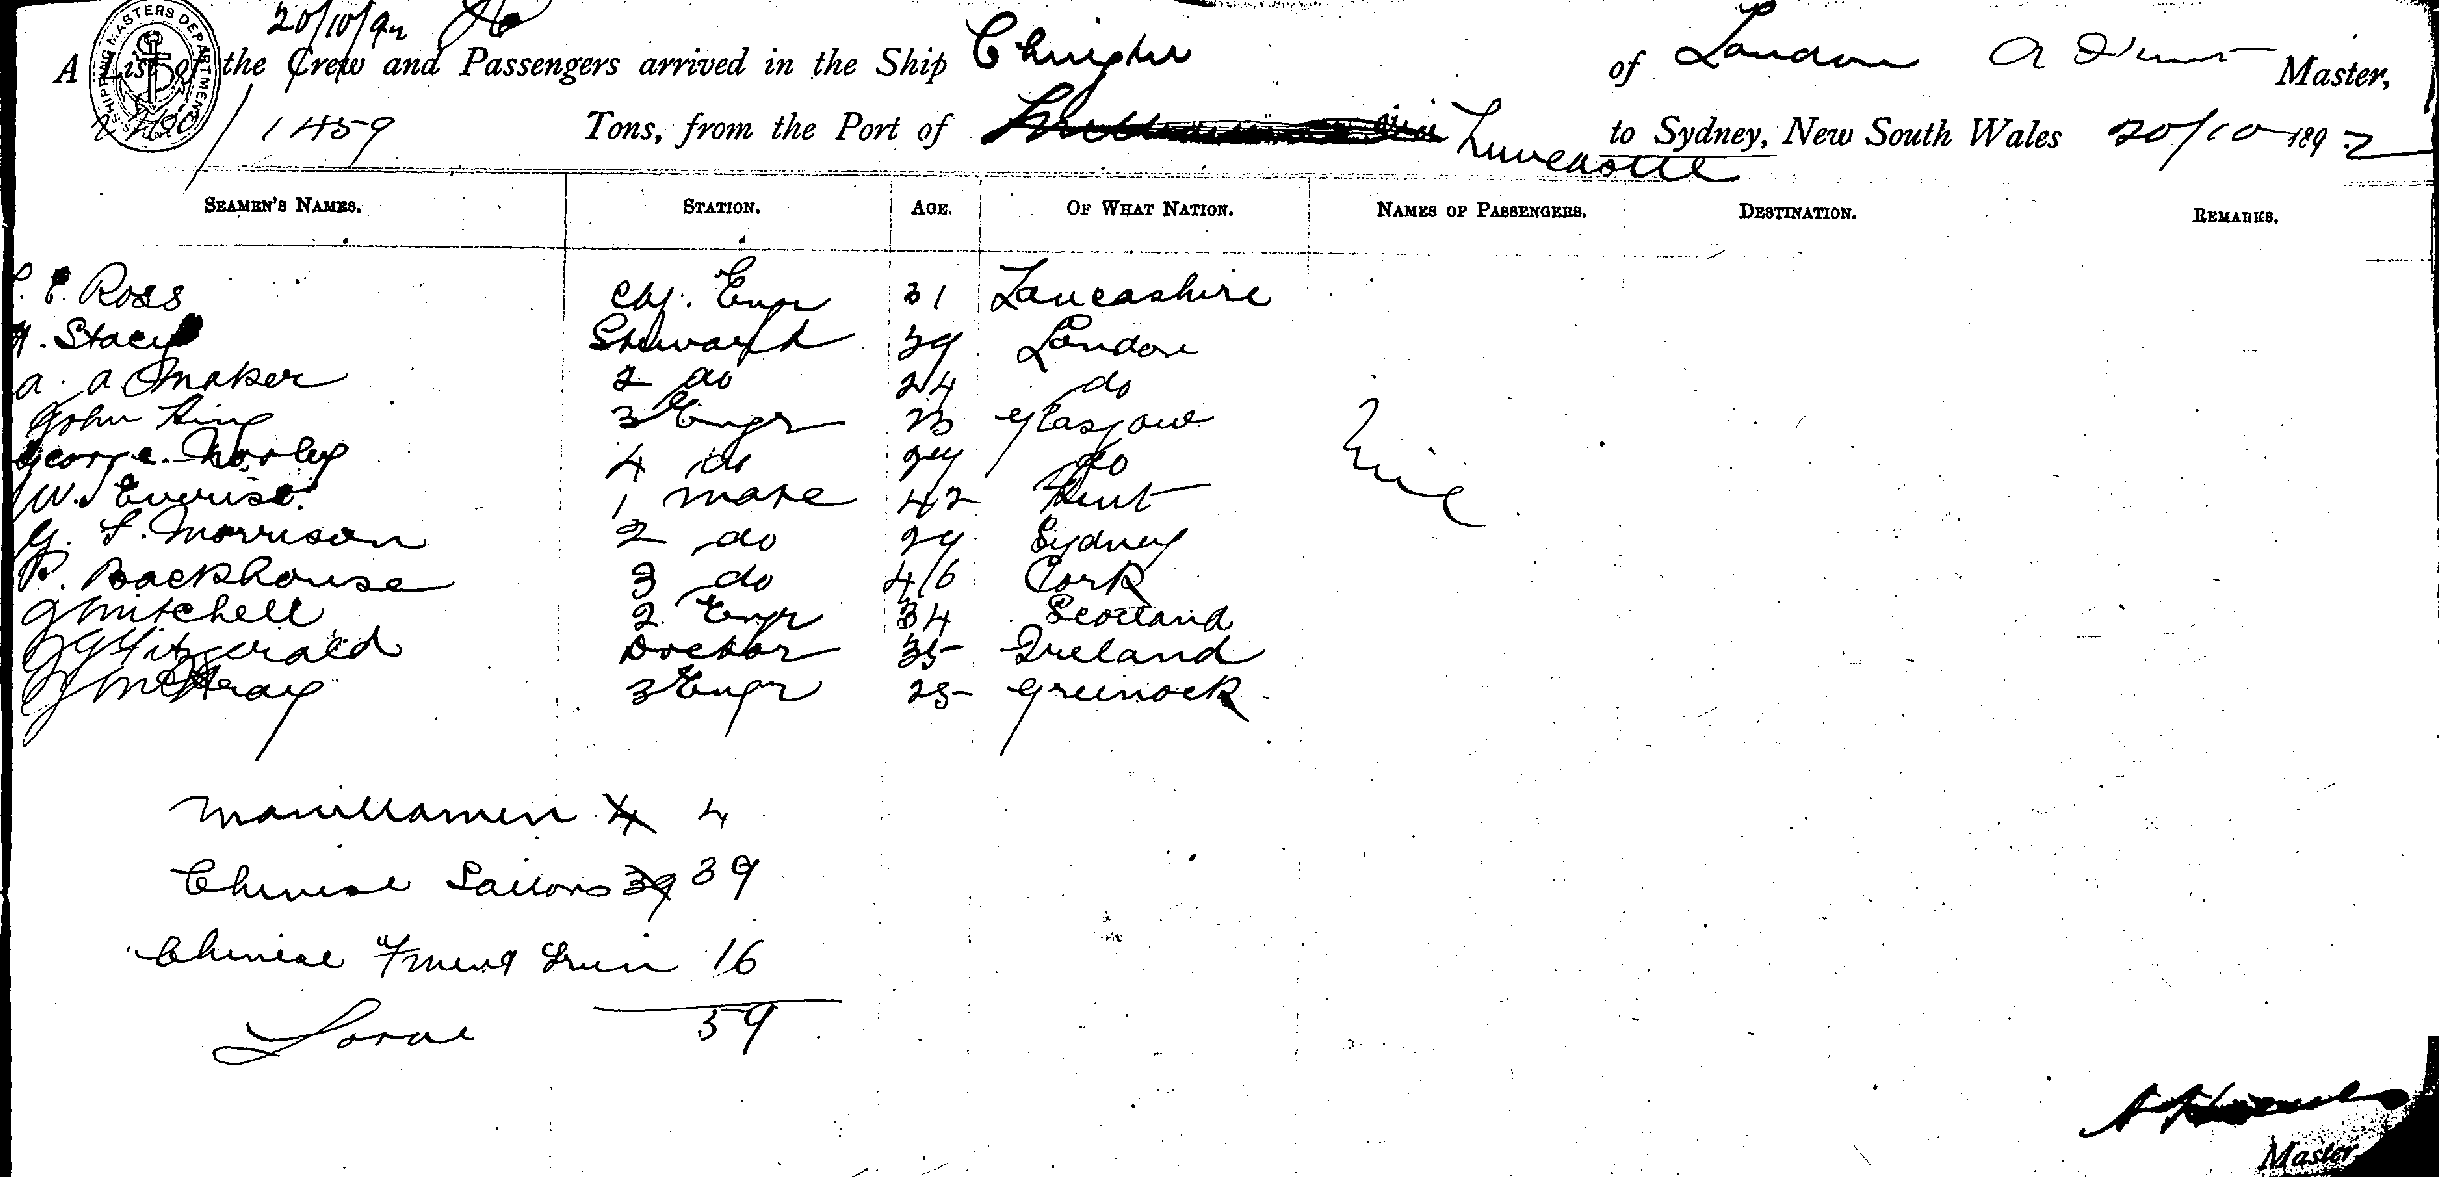 20/10/92
A List of the Crew and Passengers arrived in the Ship of London Master,
1459 Tons, from the Port of to Sydney, New South Wales 20/10 1892
SEAMEN'S NAMES. STATION. AGE. OF WHAT NATION. NAMES OF PASSENGERS. DESTINATION. REMARKS.
E. Ross Chf. Engr 31 Lancashire
H. Stacy Steward 39 London
a. a Omaker 2 do 24 do
John King 3 Engr 23 Glasgow
George Morley 4 do 24 do
W. Everist 1 mate 42 Kent
G. S. Morrison 2 do 29 Sydney
P. Backhouse 3 do 46 Cork
G Mitchell 2 Engr 34 Scotland
Fitzgerald Doctor 35 Ireland
3 Engr 25 Greenock
Nil
Manillamen 4 4
Chinese Sailors 39 39
Chinese 16
59
Master